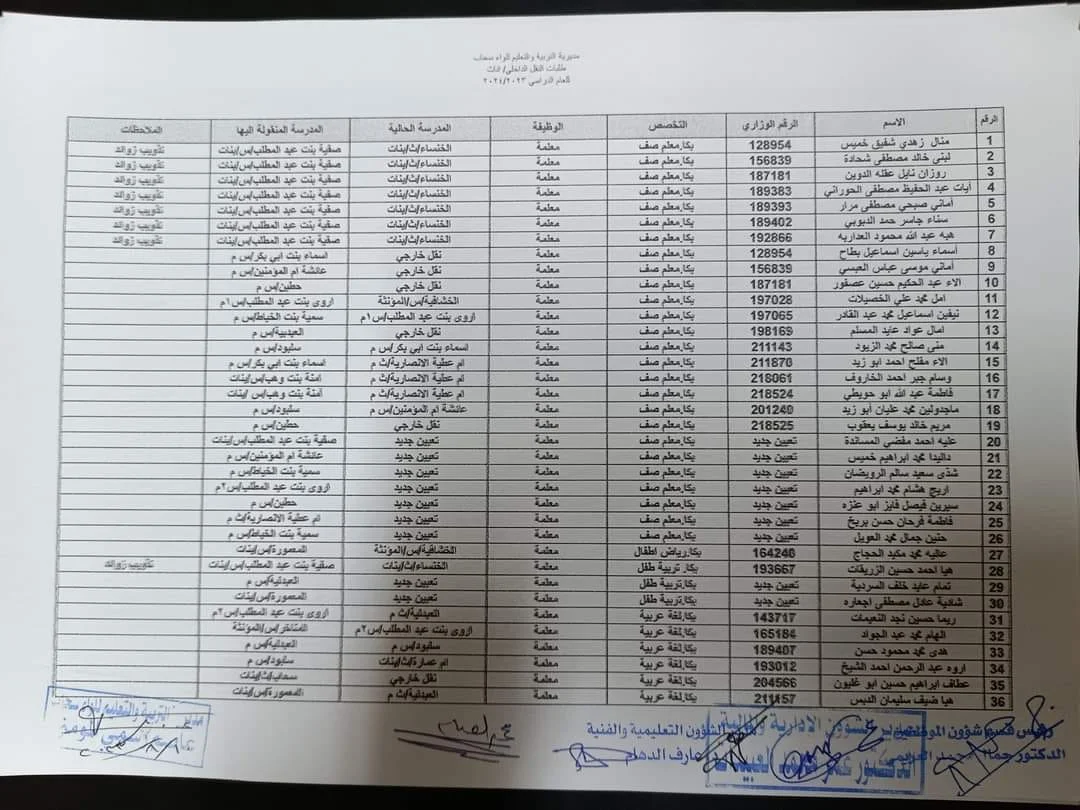 مديرية التربية والتعليم للواء سحاب
طلبات النقل الداخلي/ اناث
للعام الدراسي ٢٠٢٤/٢٠٢٣
الرقم الاسم الرقم الوزاري التخصص الوظيفة المدرسة الحالية المدرسة المنقولة اليها الملاحظات
1 منال زهدي شفيق خميس 128954 بكا.معلم صف معلمة الخنساء/ث/بنات صفية بنت عبد المطلب/س/بنات تذويب زوائد
2 لبنى خالد مصطفى شحادة 156839 بكا.معلم صف معلمة الخنساء/ث/بنات صفية بنت عبد المطلب/س/بنات تذويب زوائد
3 روزان نايل عقله الدوين 187181 بكا.معلم صف معلمة الخنساء/ث/بنات صفية بنت عبد المطلب/س/بنات تذويب زوائد
4 آيات عبد الحفيظ مصطفى الحوراني 189383 بكا.معلم صف معلمة الخنساء/ث/بنات صفية بنت عبد المطلب/س/بنات تذويب زوائد
5 أماني صبحي مصطفى مرار 189393 بكا.معلم صف معلمة الخنساء/ث/بنات صفية بنت عبد المطلب/س/بنات تذويب زوائد
6 سناء جاسر حمد الدبوبي 189402 بكا.معلم صف معلمة الخنساء/ث/بنات صفية بنت عبد المطلب/س/بنات تذويب زوائد
7 هبه عبد الله محمود العداربه 192866 بكا.معلم صف معلمة الخنساء/ث/بنات صفية بنت عبد المطلب/س/بنات تذويب زوائد
8 أسماء ياسين اسماعيل بطاح 128954 بكا.معلم صف معلمة نقل خارجي اسماء بنت ابي بكر/س م
9 أماني موسى عباس العبسي 156839 بكا.معلم صف معلمة نقل خارجي عائشة ام المؤمنين/س م
10 الاء عبد الحكيم حسين عصفور 187181 بكا.معلم صف معلمة نقل خارجي حطين/س م
11 امل محمد علي الخصيلات 197028 بكا.معلم صف معلمة الخشافية/س/المؤنثة اروى بنت عبد المطلب/س١م
12 نيفين اسماعيل محمد عبد القادر 197065 بكا.معلم صف معلمة اروى بنت عبد المطلب/س١م سمية بنت الخياط/س م
13 امال عواد عايد المسلم 198169 بكا.معلم صف معلمة نقل خارجي العبدلية/س م
14 منى صالح محمد الزيود 211143 بكا.معلم صف معلمة اسماء بنت ابي بكر/س م سلبود/س م
15 الاء مفلح احمد ابو زيد 211870 بكا.معلم صف معلمة ام عطية الانصارية/ث م اسماء بنت ابي بكر/س م
16 وسام جبر احمد الخاروف 218061 بكا.معلم صف معلمة ام عطية الانصارية/ث م امنة بنت وهب/س/بنات
17 فاطمة عبد الله ابو حويطي 218524 بكا.معلم صف معلمة ام عطية الانصارية/ث م امنة بنت وهب/س/بنات
18 ماجدولين محمد عليان أبو زيد 201240 بكا.معلم صف معلمة عائشة ام المؤمنين/س م سلبود/س م
19 مريم خالد يوسف يعقوب 218525 بكا.معلم صف معلمة نقل خارجي حطين/س م
20 عليه احمد مفضي المساندة تعيين جديد بكا.معلم صف معلمة تعيين جديد صفية بنت عبد المطلب/س/بنات
21 داليدا محمد ابراهيم خميس تعيين جديد بكا.معلم صف معلمة تعيين جديد عائشة ام المؤمنين/س م
22 شذى سعيد سالم الرويضان تعيين جديد بكا.معلم صف معلمة تعيين جديد سمية بنت الخياط/س م
23 اريج هشام محمد ابراهيم تعيين جديد بكا.معلم صف معلمة تعيين جديد اروى بنت عبد المطلب/س٢م
24 سيرين فيصل فايز ابو عنزه تعيين جديد بكا.معلم صف معلمة تعيين جديد حطين/س م
25 فاطمة فرحان حسن بريخ تعيين جديد بكا.معلم صف معلمة تعيين جديد ام عطية الانصارية/ث م
26 حنين جمال محمد العويل تعيين جديد بكا.معلم صف معلمة تعيين جديد سمية بنت الخياط/س م
27 عاليه محمد مكيد الحجاج 164246 بكا.رياض اطفال معلمة الخشافية/س/المؤنثة المعمورة/س/بنات
28 هيا احمد حسين الزريقات 193667 بكا.تربية طفل معلمة الخنساء/ث/بنات صفية بنت عبد المطلب/س/بنات تذويب زوائد
29 تمام عايد خلف السردية تعيين جديد بكا.تربية طفل معلمة تعيين جديد العبدلية/س م
30 شادية عادل مصطفى اجعاره تعيين جديد بكا.تربية طفل معلمة تعيين جديد المعمورة/س/بنات
31 ريما حسين نجد النعيمات 143717 بكا.لغة عربية معلمة العبدلية/ث م اروى بنت عبد المطلب/س٢م
32 الهام محمد عبد الجواد 165184 بكا.لغة عربية معلمة اروى بنت عبد المطلب/س٢م المناخر/س/المؤنثة
33 هدى محمد محمود حسن 189407 بكا.لغة عربية معلمة سلبود/س م العبدلية/س م
34 اروه عبد الرحمن احمد الشيخ 193012 بكا.لغة عربية معلمة ام عمارة/ث/بنات سلبود/س م
35 عطاف ابراهيم حسين ابو غليون 204566 بكا.لغة عربية معلمة نقل خارجي سحاب/ث/بنات
36 هيا ضيف سليمان الدبس 211157 بكا.لغة عربية معلمة العبدلية/ث م المعمورة/س/بنات
رئيس قسم شؤون الموظفين
الشؤون الادارية والمالية
الشؤون التعليمية والفنية
التربية والتعليم للواء
الدكتور
عارف الدهام